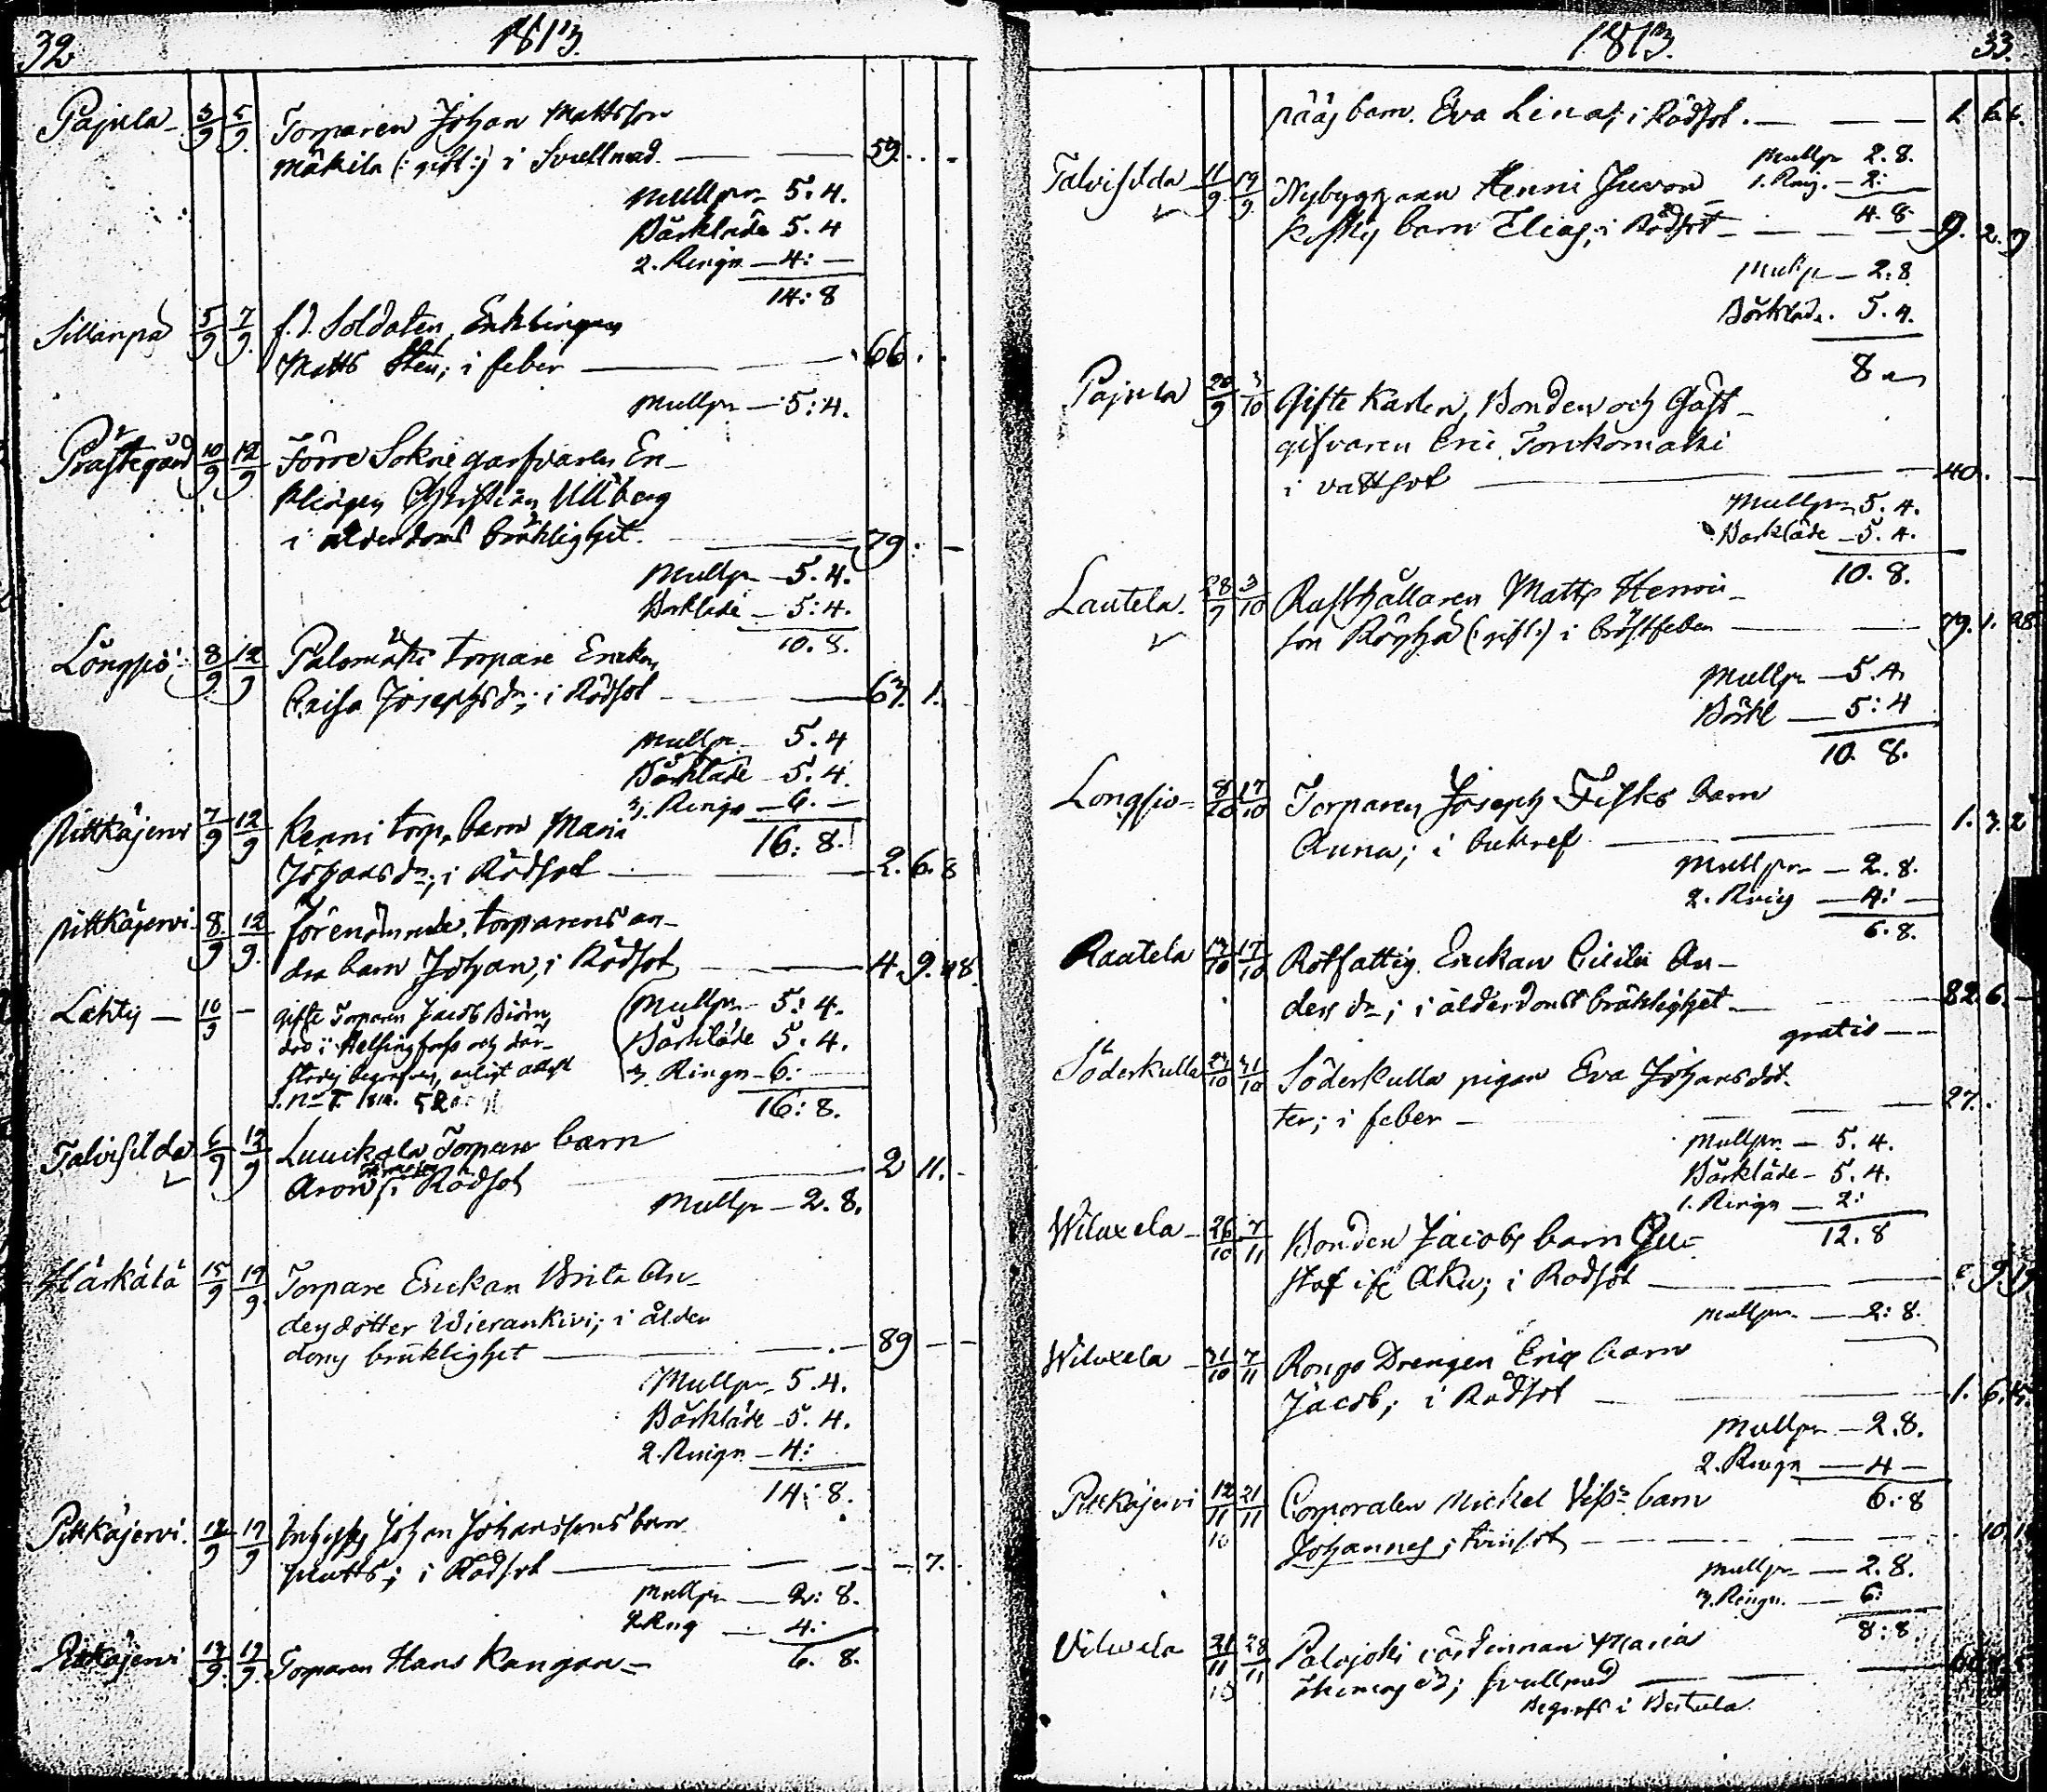 32. 1813.
Pajula 3/9 5/9 Torparen Johan Mattsson
Mäkila (: gift :) i Svullnad. — 59. . -
Mullpn 5. 4.
Bårkläde 5. 4
2. Ringn — 4: —
14: 8
Sillanpä 5/9 7/9 f. d. Soldaten, Enklingen
Matts Sten; i feber — 66. .
Mullpn — 5: 4.
Prästegård 10/9 12/9 Förre Sokne garfvaren En-
klingen Christian Ullberg
i ålderdoms bräklighet. — 79. —
Mullpn — 5. 4.
Borklede — 5: 4.
10. 8.
Långsjö 8/9 12/9 Palomäki torpare Enkan
Caisa Josephsdr; i Rödsot — 63. 1.
Mullpn 5. 4
Bårkläde — 5. 4.
3. Ringn — 6. —
16: 8.
Pittkäjervi 7/9 12/9 Kenni torp. barn Maria
Johansdr; i Rödsot — 2. 6. 8
Pittkäjervi 8/9 12/9 förenämnde torparens an-
dra barn Johan, i Rödsot — 4. 9. 18.
Lahty — 10/9 — gifte Torparen Jacob Biörn,
dro i Helsingfors och där-
städes begrafven, enligt attest
Mullpn 5: 4.
Bårkläde 5. 4.
3. Ringn — 6: —
16: 8.
Talvisilda 6/9 12/9 Luuckala Torpare barn
Aron i Rödsot — 2 11. -
Mullpn — 2. 8.
Härkälä 15/9 19/9 Torpare Enckan Brita An-
dersdotter Wierankivi; i ålder
doms bräklighet — 89 — —
Mullpn 5. 4.
Bårkläde — 5. 4.
2. Ringn — 4:
14: 8.
Pittkäjervi. 18/9 19/9 Inhyses Johan Johanssons barn
Matts; i Rödsot — - 7.
Mullpn — 2: 8.
2 Ring — 4:
6. 8.
Pitkäjervi 17/9 19/9 Torparen Hans Kangan-
1813. 33.
pääs barn. Eva Lina; i Rödsot. — 1. 6.
Mullpn 2. 8.
1. Ring. — 2:
4. 8.
Talvisilda 11/9 19/9 Nybyggaren Henric Juvan
koskis barn Elias; i Rödsot — 9. 2. 9
Mullp — 2: 8.
Bårkläde. 5. 4.
8 —
Pajula 26/9 3/10 Gifte Karlen, Bonden och Gäst-
gifvaren Eric Torrkomäki
i vattsot — 40. —
Mullpn 5. 4.
Barkläde — 5. 4.
10. 8.
Lautela. 28/9 3/10 Rusthållaren Matts Henric-
son Röyhä (: gift :) i bröstfeber — 79. 1. 28
Mullpn — 5. 4
Bårkl — 5: 4
10. 8.
Longsio 8/10 17/10 Torparen Joseph Fisks barn
Anna; i bukref — 1. 3. 2
Mullpn — 2. 8.
2. Ring — 4: —
6. 8.
Raatela 13/10 17/10 Rotfattig. Enckan Cicilia An-
ders dr; i ålderdoms bräklighet. — 82. 6. —
gratis —
Söderkulla 23/10 31/10 Söderkulla pigan Eva Johansdot-
ter; i feber — 27. .
Mullpn — 5. 4.
Bårkläde — 5. 4.
1. Ringn — 2:
12. 8
Wiluxela 26/10 7/11 Bonden Jacobs barn Gu-
staf Aku; i Rödsot — 9. 19
Mullpn. — 2: 8.
Wiluxela 31/10 7/11 Rongo Drengen Erics barn
Jacob; i Rödsot — 1. 6. 15.
Mullpn — 2. 8.
2. Ringn — 4 —
6: 8
Pitkäjervi 12/11 21/11 Corporalen Mickel barn
Johannes; tvinsot — 10. 1
10
Mullpn — 2. 8.
3. Ringn. — 6:
8: 8.
Viluxela 21/11 28/11 Palojoki värdinnan Maria
10
svullnad —
Begrofs i